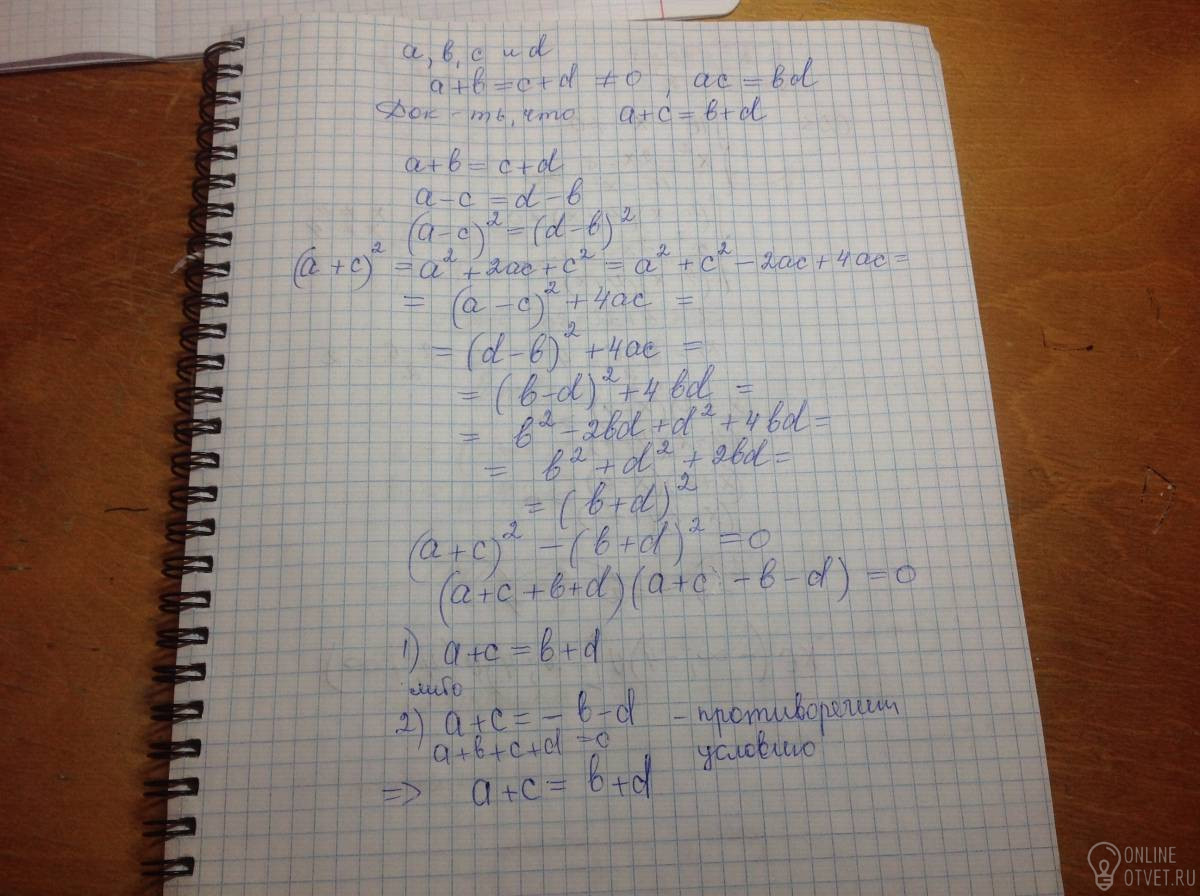 а, в, с и d
а+в = c+d ≠ 0, ac = вd
Док-ть, что a+c = в+d
a+в = c+d
a-c = d-в
(a-c)² = (d-в)²
(a+c)² = a² + 2ac + c² = a² + c² - 2ac + 4ac =
= (a-c)² + 4ac =
= (d-в)² + 4ac =
= (в-d)² + 4вd =
= в² - 2вd + d² + 4вd =
= в² + d² + 2вd =
= (в+d)²
(a+c)² - (в+d)² = 0
(a+c+в+d)(a+c-в-d) = 0
1) a+c = в+d
либо
2) a+c = -в-d - противоречит
a+в+c+d = 0 условию
=> a+c = в+d
ONLINE
OTVET.RU